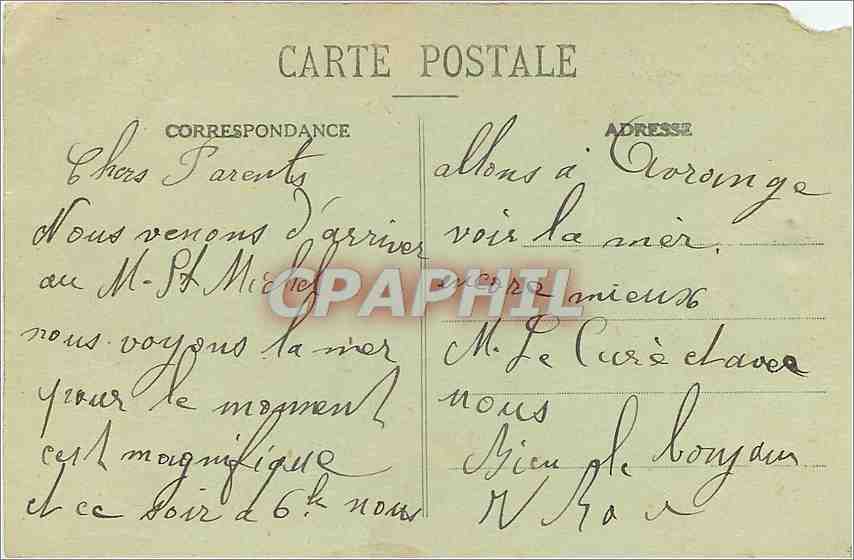 CARTE POSTALE
CORRESPONDANCE
Chers Parents
Nous venons d'arriver
au M-St Michel
nous voyons la mer
pour le moment
c'est magnifique
et ce soir à 6h nous
ADRESSE
allons à Avrange
voir la mèr.
encore mieux
M. Le Curé et avec
nous
Bien le bonjour
CPAPHIL